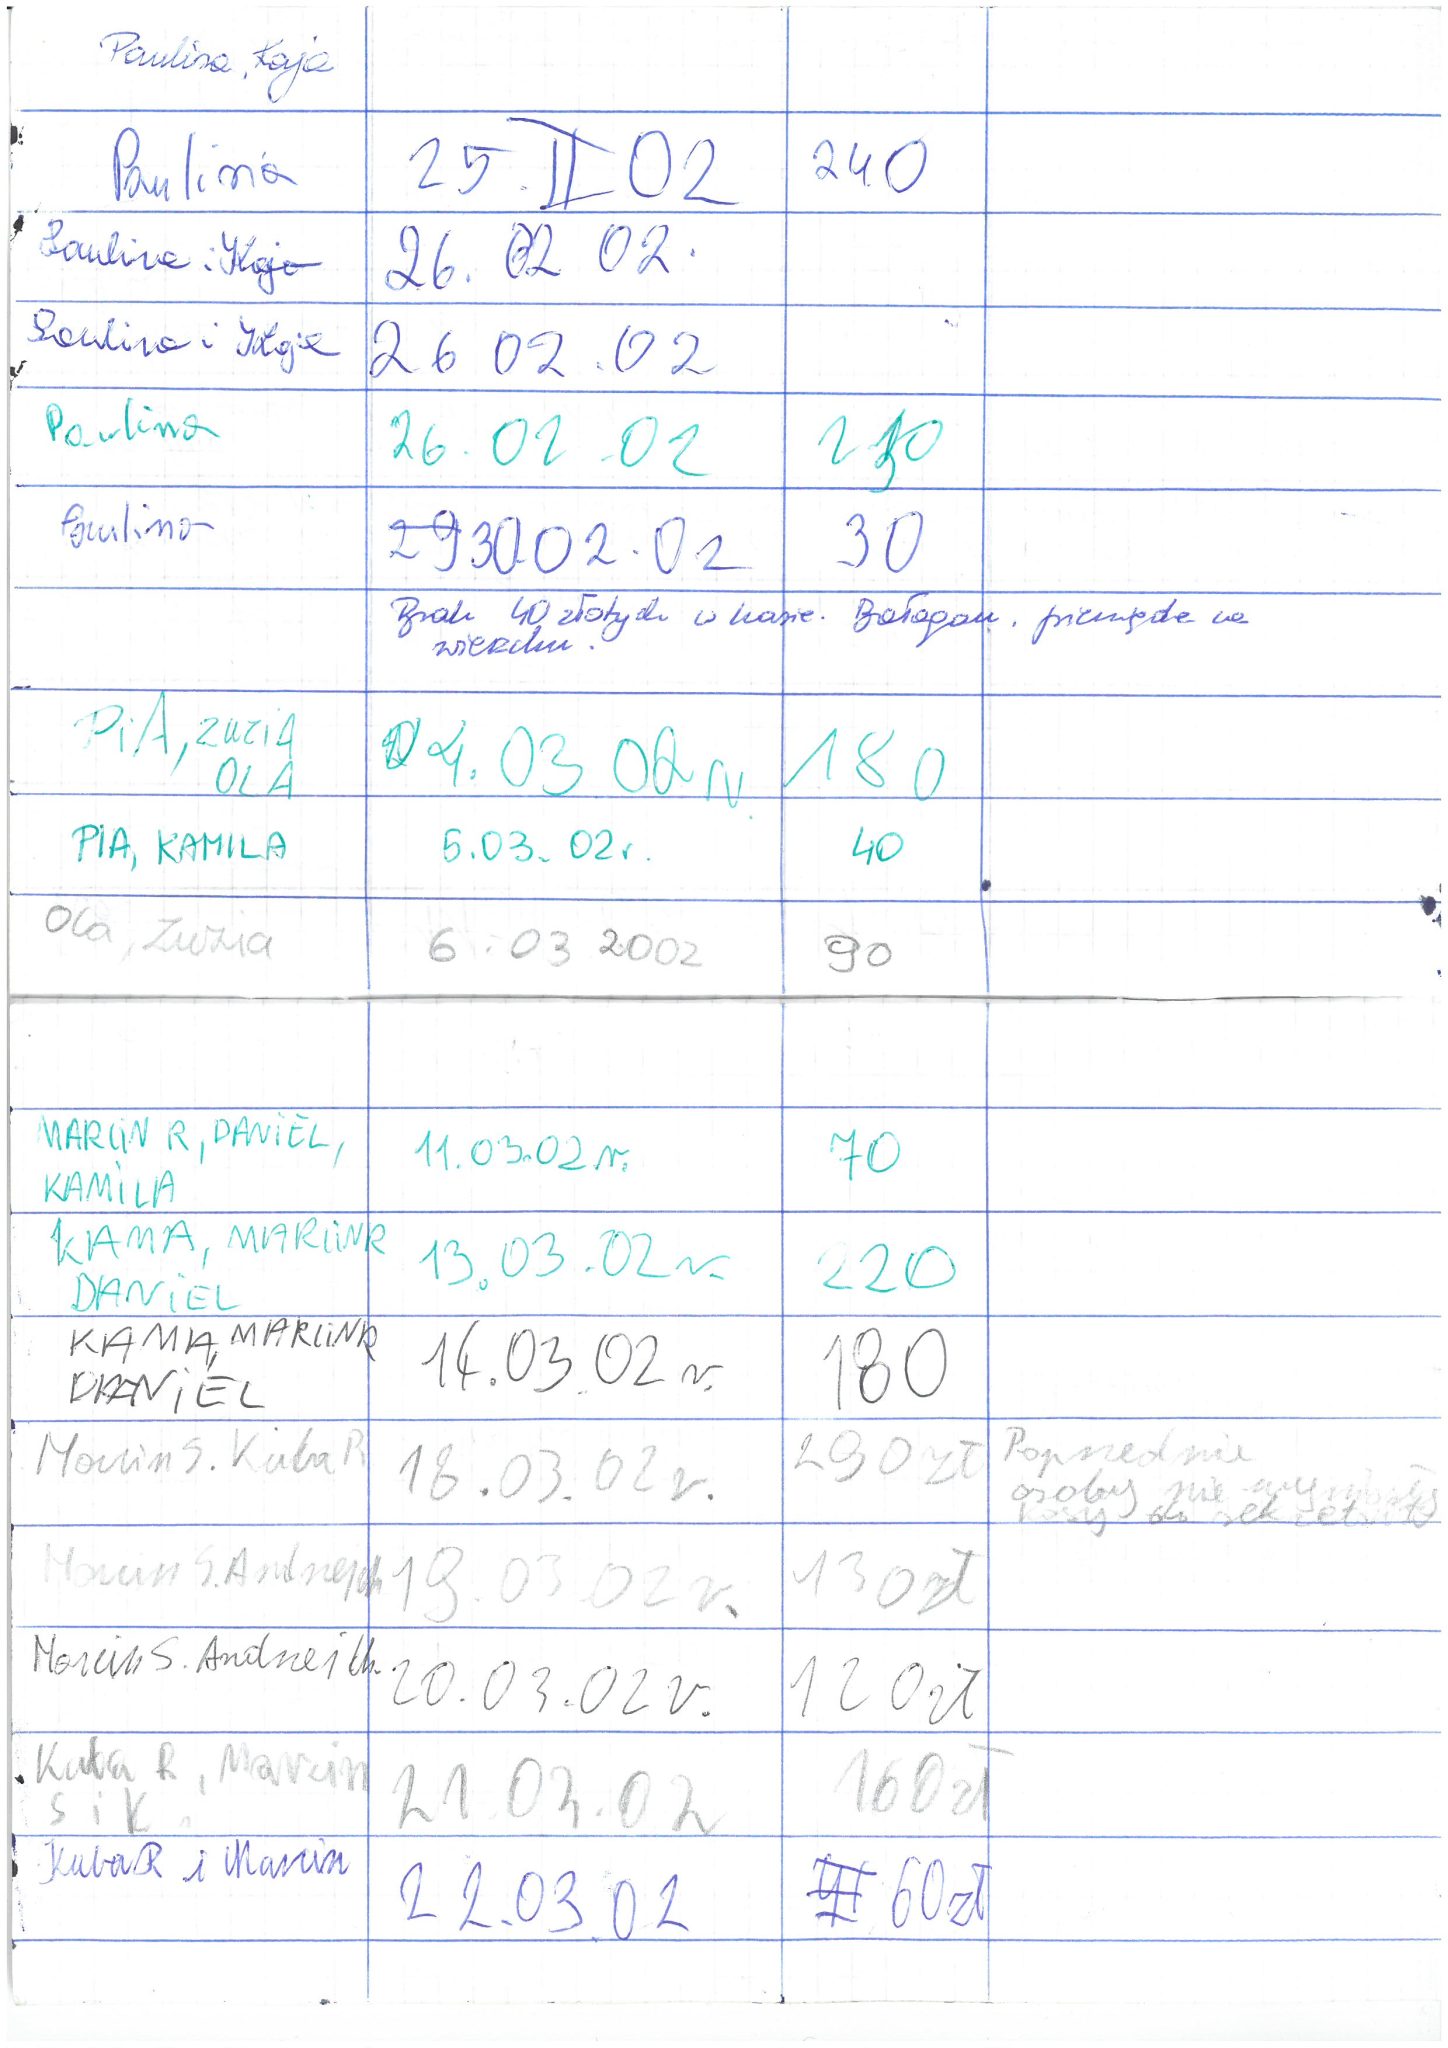 Paulina, Kaja
Paulina 25.II 02 240
Paulina i Kaja 26. 02 02.
Paulina i Kaja 26 02.02
Paulina 26.02.02
Paulina 29 30.02.02 30
Brak 40 złotych w kasie. Bałagan. pieniądze na
wierzchu.
PiA, ZUZIA
OLA 04.03 02 r. 180
PIA, KAMILA 5.03.02r. 40
Ola, Zuzia 6.03 2002 90
MARCIN R, DANIEL,
KAMILA 11.03.02 r. 70
KAMA, MARCIN R
DANIEL 13.03.02 r. 220
KAMA, MARCIN R
DANIEL 14.03.02 r. 180
Marcin S. Kuba R 18.03.02 r. 290 zł Poprzednie
osoby nie wyniosły
kasy do sekretariatu
Marcin S. Andrzej Ch 19.03.02 r. 130 zł
Marcin S. Andrzej Ch. 20.03.02 r. 120 zł
Kuba R, Marcin
S i K. 21.03.02 160 zł
Kuba R i Marcin 22.03.02 60 zł